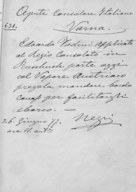 Agente Consolare Italiano
Varna
631.
Edoardo Vadini applicato
al Regio Consolato in
Rustchuk parte oggi
col Vapore Austriaco
pregola mandare bordo
per facilitargli
sbarco. —
26 Giugno 77.
Negri